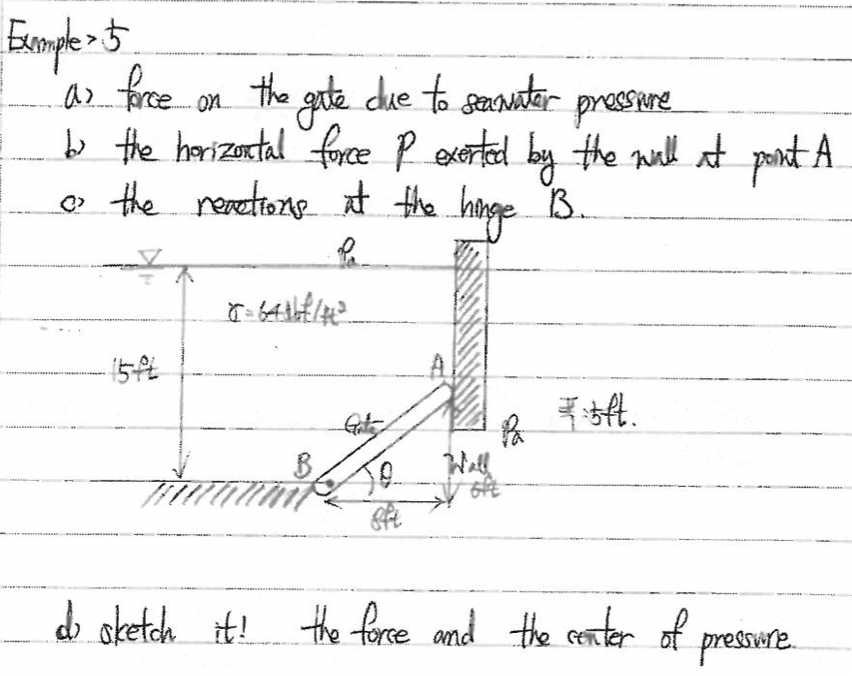 Example > 5
a) force on the gate due to seawater pressure
b) the horizontal force P exerted by the wall at point A
c) the reactions at the hinge B.
Pa
γ=64 lbf/ft³
15ft
A
Gate
폭:5ft.
Pa
B
θ
Wall
6ft
8ft
d) sketch it! the force and the center of pressure.